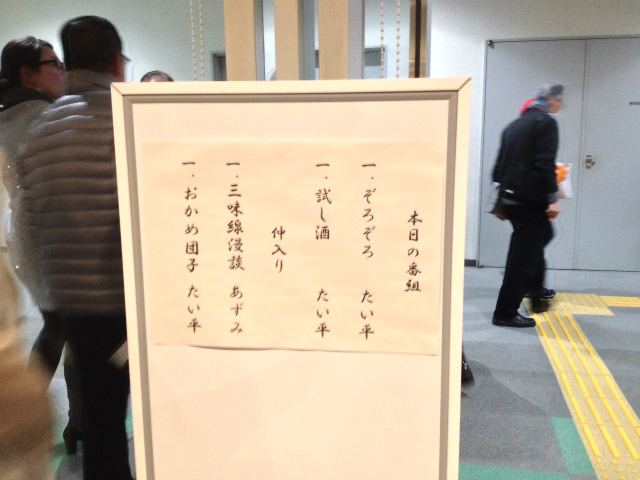 本日の番組
一．ぞろぞろ たい平
一．試し酒 たい平
仲入り
一．三味線漫談 あずみ
一．おかめ団子 たい平